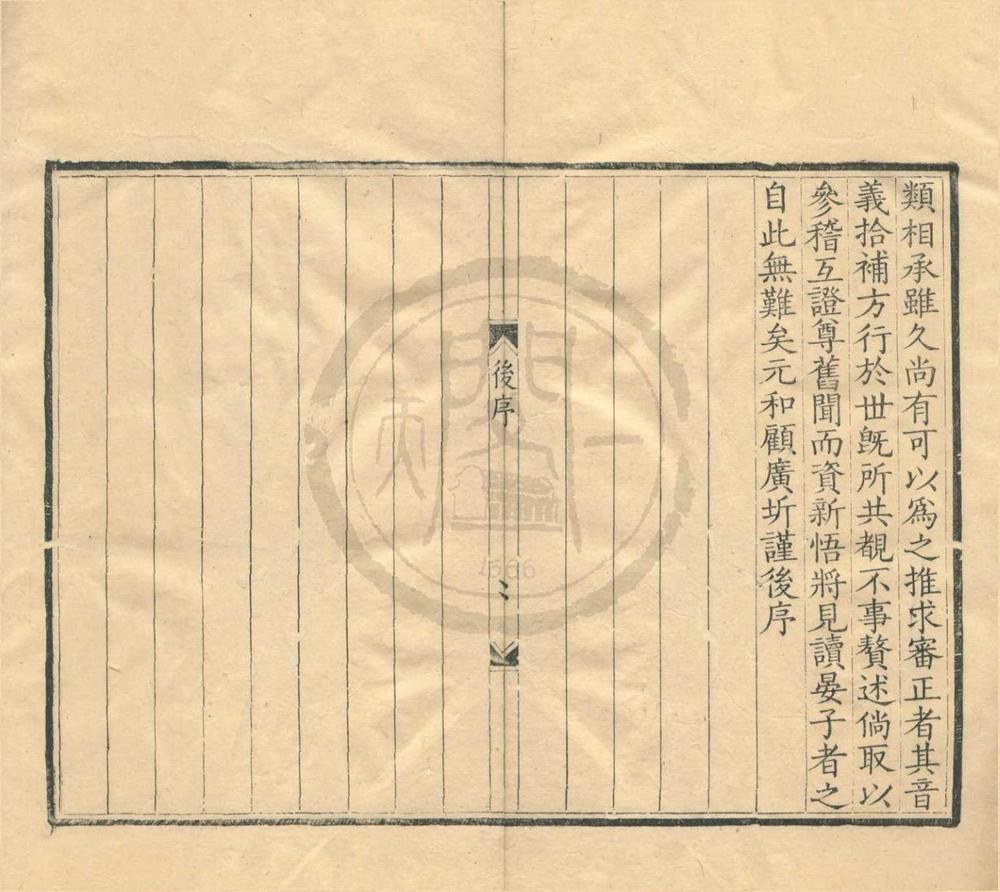 類相承雖久尚有可以爲之推求審正者其音
義拾補方行於世旣所共覩不事贅述倘取以
參稽互證尊舊聞而資新悟將見讀晏子者之
自此無難矣元和顧廣圻謹後序
後序
二
1566